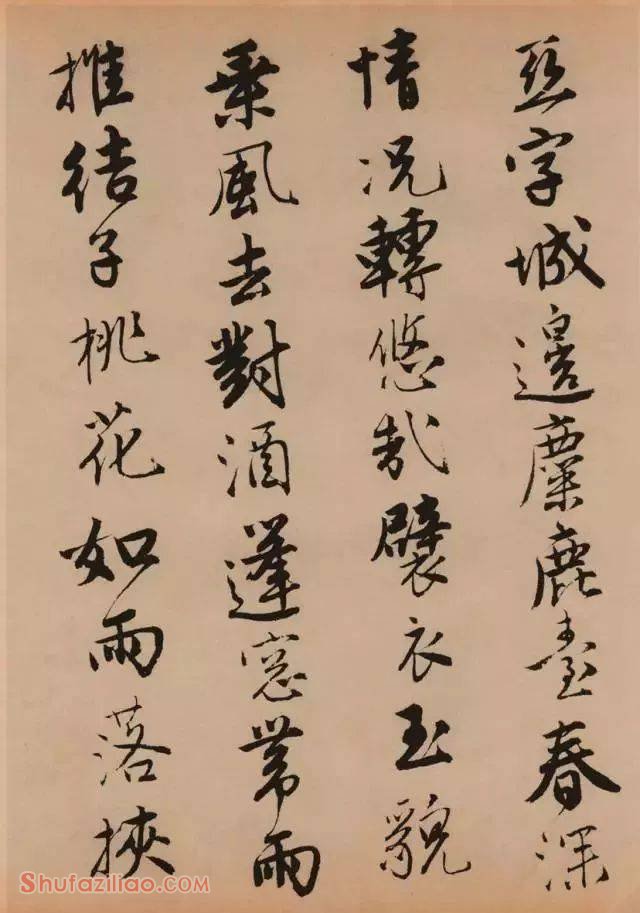 亞字城邊麋鹿臺春深
情況轉悠哉襞衣玉貌
乘風去對酒蓬窓帶雨
推結子桃花如雨落挾
Shufaziliao.COM